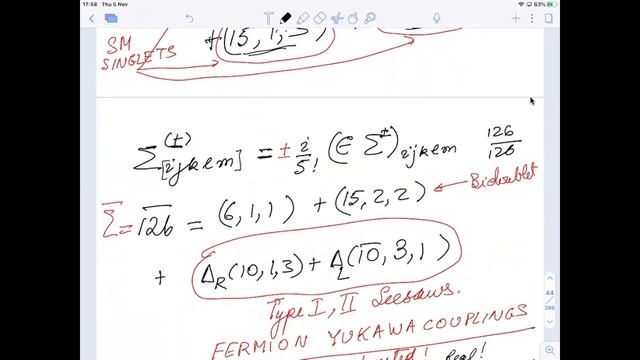 17:58 Thu 5 Nov
63%
+ (15, 1, 3)
SM
SINGLETS
Σ^(±)_[ijkem] = ± i/5! (∈ Σ^±)_ijkem 126/1̅2̅6̅
Σ̅ = 1̅2̅6̅ = (6,1,1) + (15,2,2) ← Bidoublet
+ Δ_R(10,1,3) + Δ_L(1̅0̅, 3, 1)
Type I, II Seesaws.
FERMION YUKAWA COUPLINGS
Real!
44
286